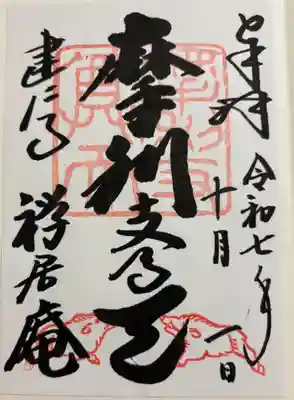 奉拝
令和七年
十月一日
摩利支尊天
建仁寺
禅居庵